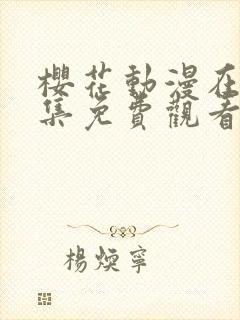 櫻花動漫在
集免費觀看
楊煥寧